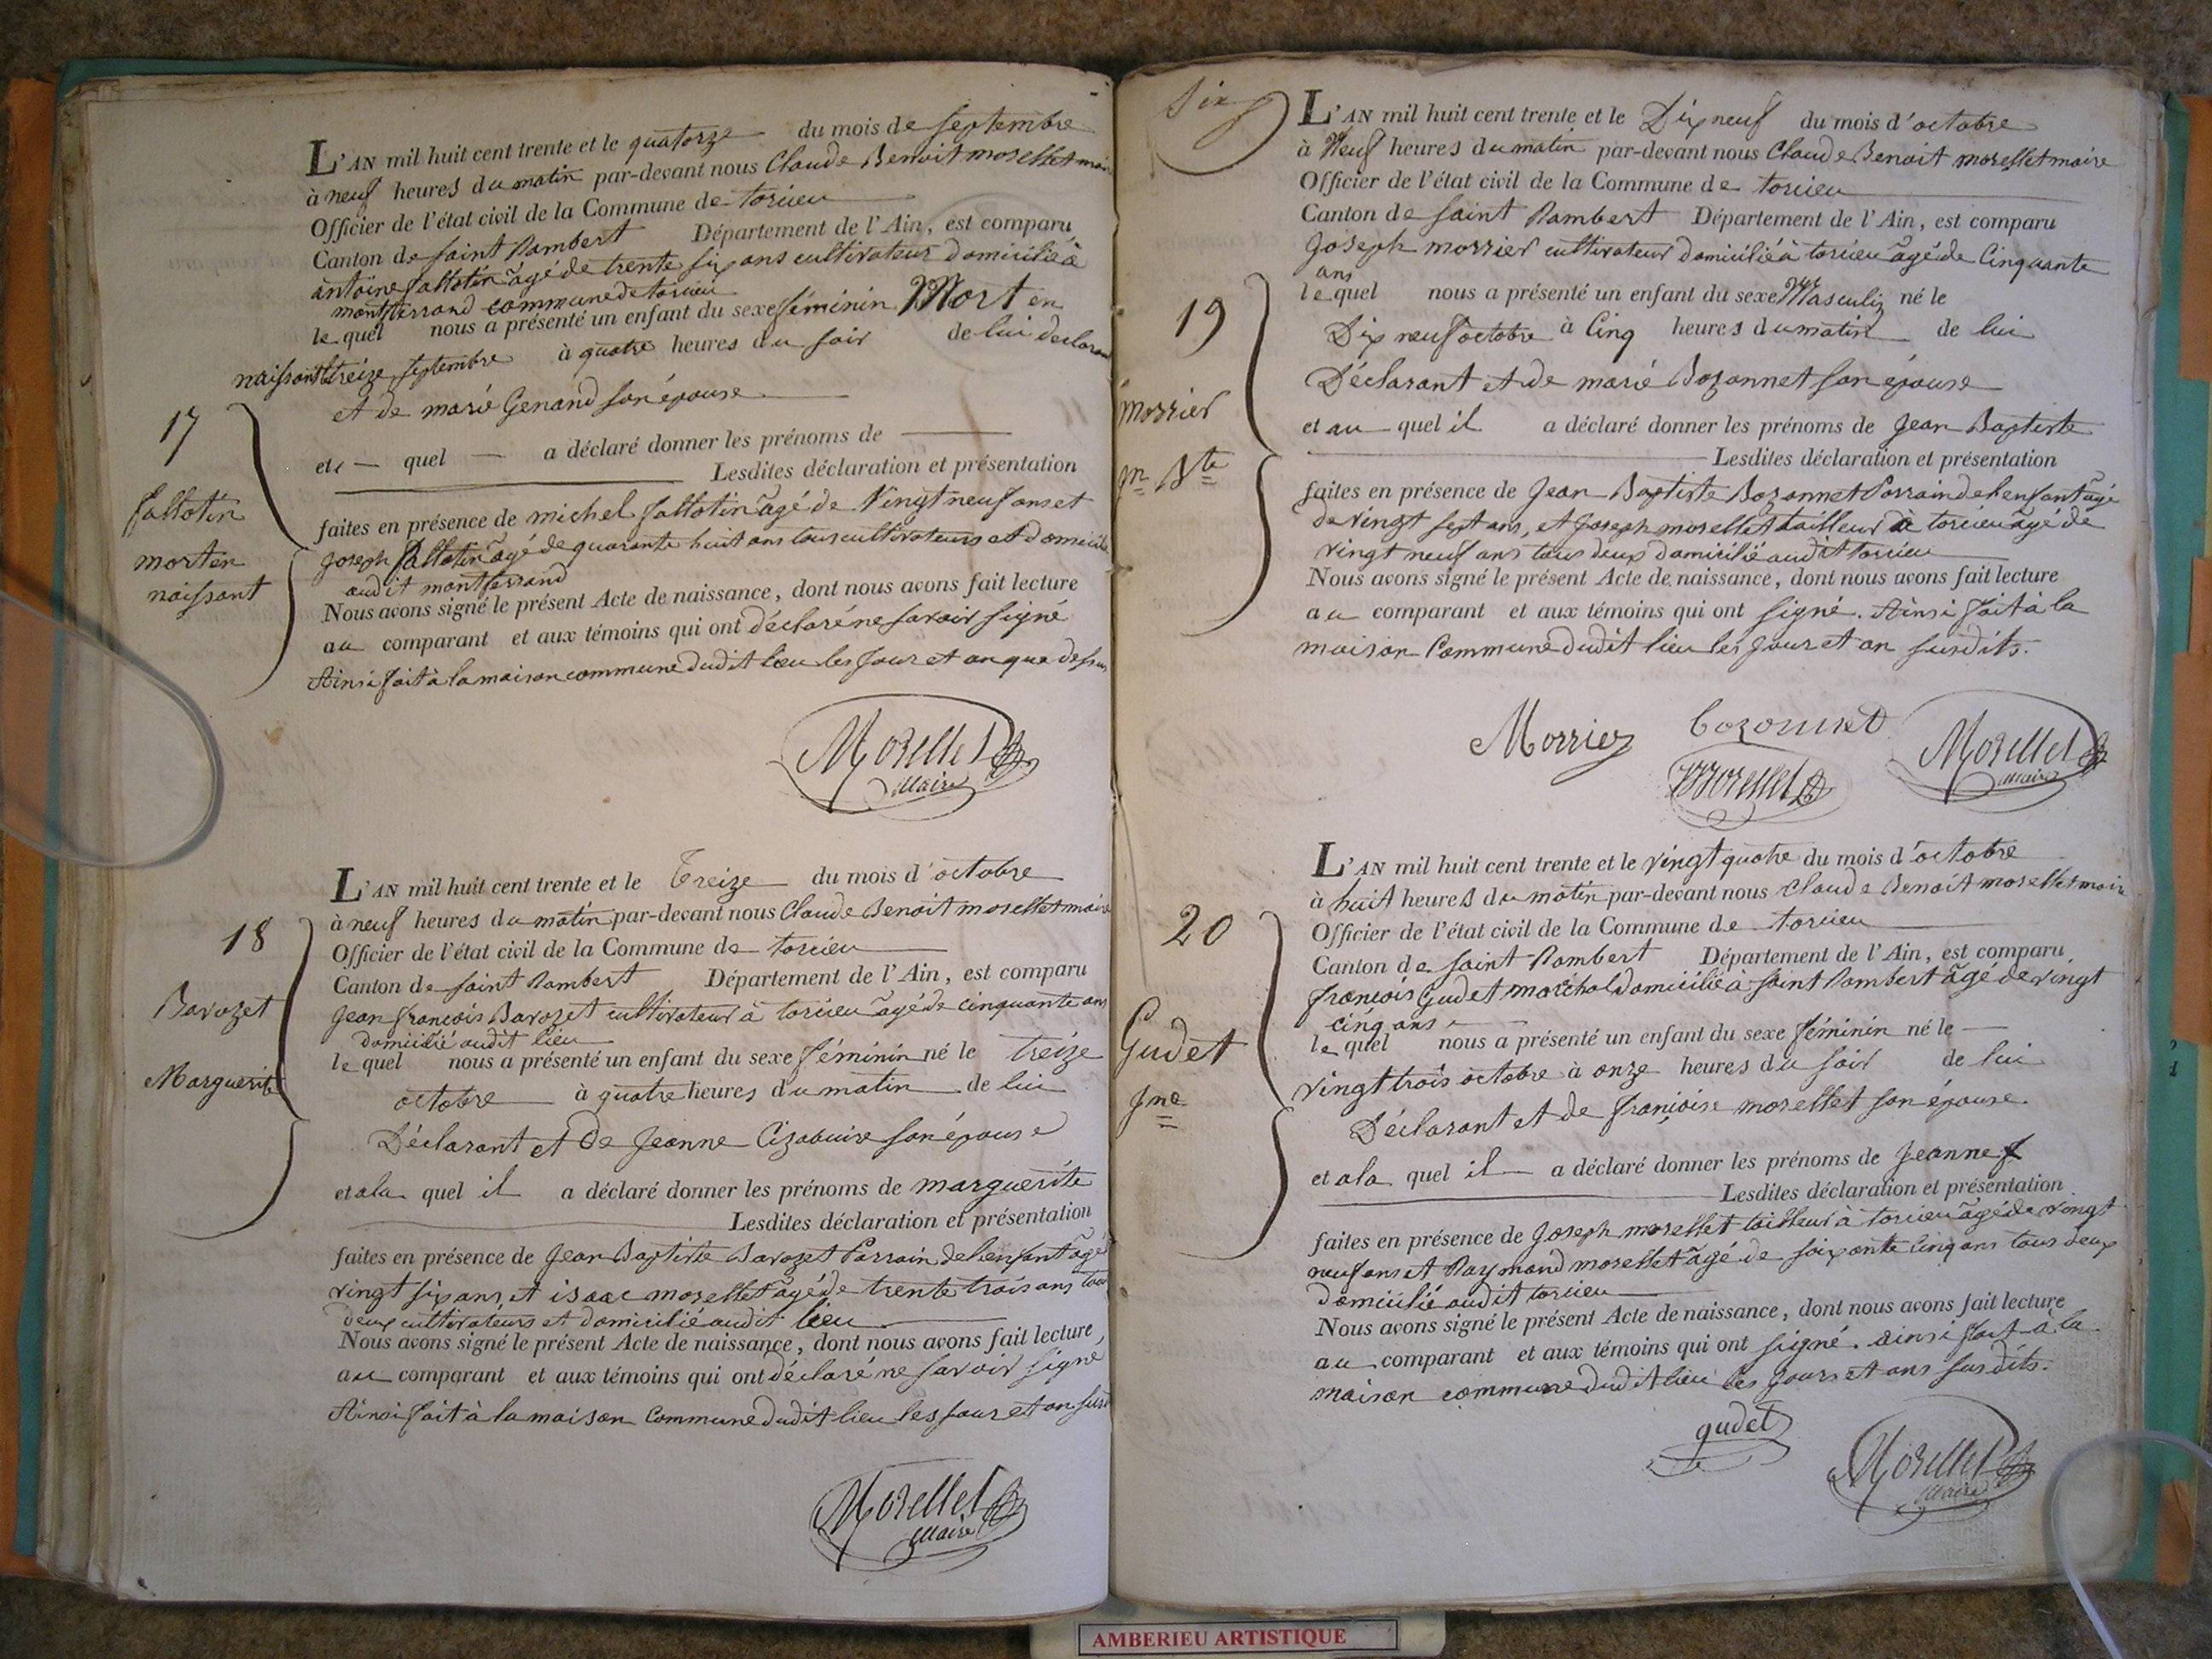 L'AN mil huit cent trente et le quatorze du mois de septembre
à neuf heures du matin par-devant nous Claude Benoit morellet mair
Officier de l'état civil de la Commune de torcieu
Canton de saint Rambert Département de l'Ain, est comparu
antoine fallotin âgé de trente six ans cultivateur domicilié à
montferrand commune de torcieu
le quel nous a présenté un enfant du sexe féminin Mort en
naissant le treize septembre à quatre heures du soir de lui declaran
et de marie Genand son épouse
17
et quel a déclaré donner les prénoms de
Lesdites déclaration et présentation
fallotin
mort en
naissant
faites en présence de michel fallotin âgé de Vingt neuf ans et
joseph fallotin âgé de quarante huit ans tous cultivateurs et domicilié
audit montferrand
Nous avons signé le présent Acte de naissance, dont nous avons fait lecture
au comparant et aux témoins qui ont déclaré ne savoir signé
Ainsi fait à la maison commune dudit lieu les jour et an que dessus
Morellet
Maire
L'AN mil huit cent trente et le Treize du mois d'octobre
à neuf heures du matin par-devant nous Claude Benoit morellet maire
18
Officier de l'état civil de la Commune de torcieu
Canton de saint Rambert Département de l'Ain, est comparu
Bavozet
jean françois Bavozet cultivateur à torcieu âgé de cinquante ans
domicilié audit lieu
le quel nous a présenté un enfant du sexe féminin né le treize
Marguerite
octobre à quatre heures du matin de lui
Déclarant et de jeanne son épouse
et a la quel il a déclaré donner les prénoms de marguerite
Lesdites déclaration et présentation
faites en présence de jean Baptiste Bavozet Parrain de l'enfant âgé
vingt six ans et isaac morellet âgé de trente trois ans tous
deux cultivateurs et domicilié audit lieu
Nous avons signé le présent Acte de naissance, dont nous avons fait lecture
au comparant et aux témoins qui ont déclaré ne savoir signé
Ainsi fait à la maison Commune dudit lieu les jour et an susd
Morellet
Maire
Six
L'AN mil huit cent trente et le Dix neuf du mois d'octobre
à Neuf heures du matin par-devant nous Claude Benoit morellet maire
Officier de l'état civil de la Commune de torcieu
Canton de saint Rambert Département de l'Ain, est comparu
joseph morrier cultivateur domicilié à torcieu âgé de Cinquante
ans
19
le quel nous a présenté un enfant du sexe Masculin né le
Dix neuf octobre à Cinq heures du matin de lui
Déclarant et de marie Bozonnet son épouse
morrier
jn Bte
et au quel il a déclaré donner les prénoms de jean Baptiste
Lesdites déclaration et présentation
faites en présence de jean Baptiste Bozonnet Parrain de l'enfant âgé
de vingt sept ans, et joseph morellet tailleur à torcieu âgé de
vingt neuf ans tous deux domicilié audit torcieu
Nous avons signé le présent Acte de naissance, dont nous avons fait lecture
au comparant et aux témoins qui ont signé. Ainsi fait à la
maison Commune dudit lieu les jour et an susdits.
Morrier bozonnet Morellet
Maire
Morellet
L'AN mil huit cent trente et le vingt quatre du mois d'octobre
à huit heures du matin par-devant nous Claude Benoit morellet mair
20
Officier de l'état civil de la Commune de torcieu
Canton de saint Rambert Département de l'Ain, est comparu
françois Gudet maréchal domicilié à saint Rambert âgé de vingt
cinq ans
Gudet
jne
le quel nous a présenté un enfant du sexe féminin né le
vingt trois octobre à onze heures du soir de lui
Déclarant et de françoise morellet son épouse.
et a la quel il a déclaré donner les prénoms de jeanne
Lesdites déclaration et présentation
faites en présence de joseph morellet tailleur à torcieu âgé de vingt
neuf ans et Raymond morellet âgé de soixante Cinq ans tous deux
domicilié audit torcieu
Nous avons signé le présent Acte de naissance, dont nous avons fait lecture
au comparant et aux témoins qui ont signé. ainsi fait à la
maison commune dudit lieu les jours et ans susdits.
gudet
Morellet
Maire
AMBERIEU ARTISTIQUE